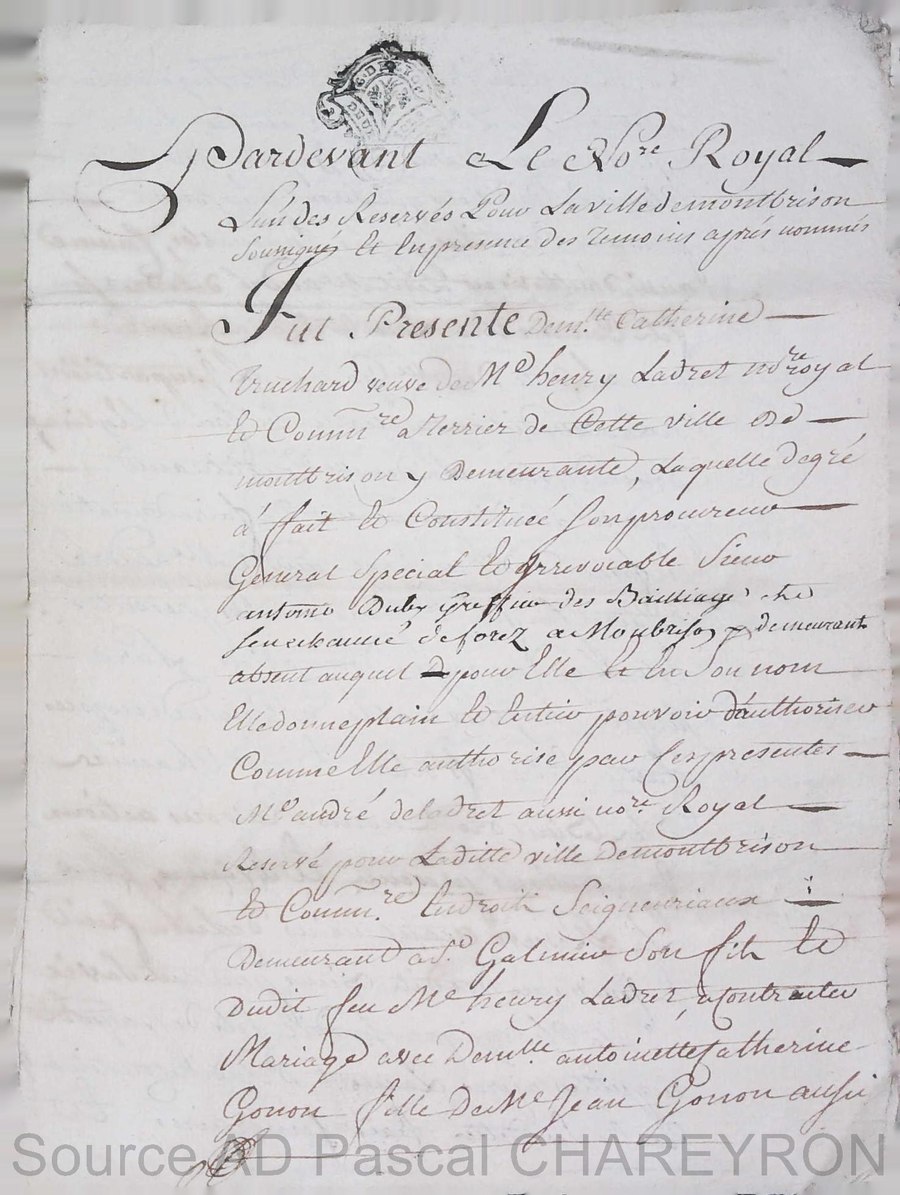 Pardevant Le No.re Royal
L'un des Reservés Pour La ville de montbrison
Sousignés Et En presence des Temoins aprés nommés
Fut Presente Dem.lle Catherine
Truchard veuve de Me henry Ladret no.re royal
Et Comm.re a Terrier de Cette ville De
montbrison y Demeurante, Laquelle degré
á fait Et Constituéé Son procureur
General Special Et Irrevocable Sieur
antoine greffier des Bailliage Et
Senechaussé de forez a Monbrison y demeurant
absent auquel pour Elle Et En Son nom
Elle donne plain Et Entier pouvoir d'authoriser
Comme Elle authorise par Ces presentes
Me andré deladret aussi no.re Royal
Reservé pour Laditte ville De montbrison
Et Comm.re En droits Seigneuriaux
Demeurand a St. Galmier Son fils Et
Dudit feu Me henry Ladret, a Contracter
Mariage avec Dem.lle antoinette Catherine
Gonon fille De Me Jean Gonon aussi
Source AD Pascal CHAREYRON